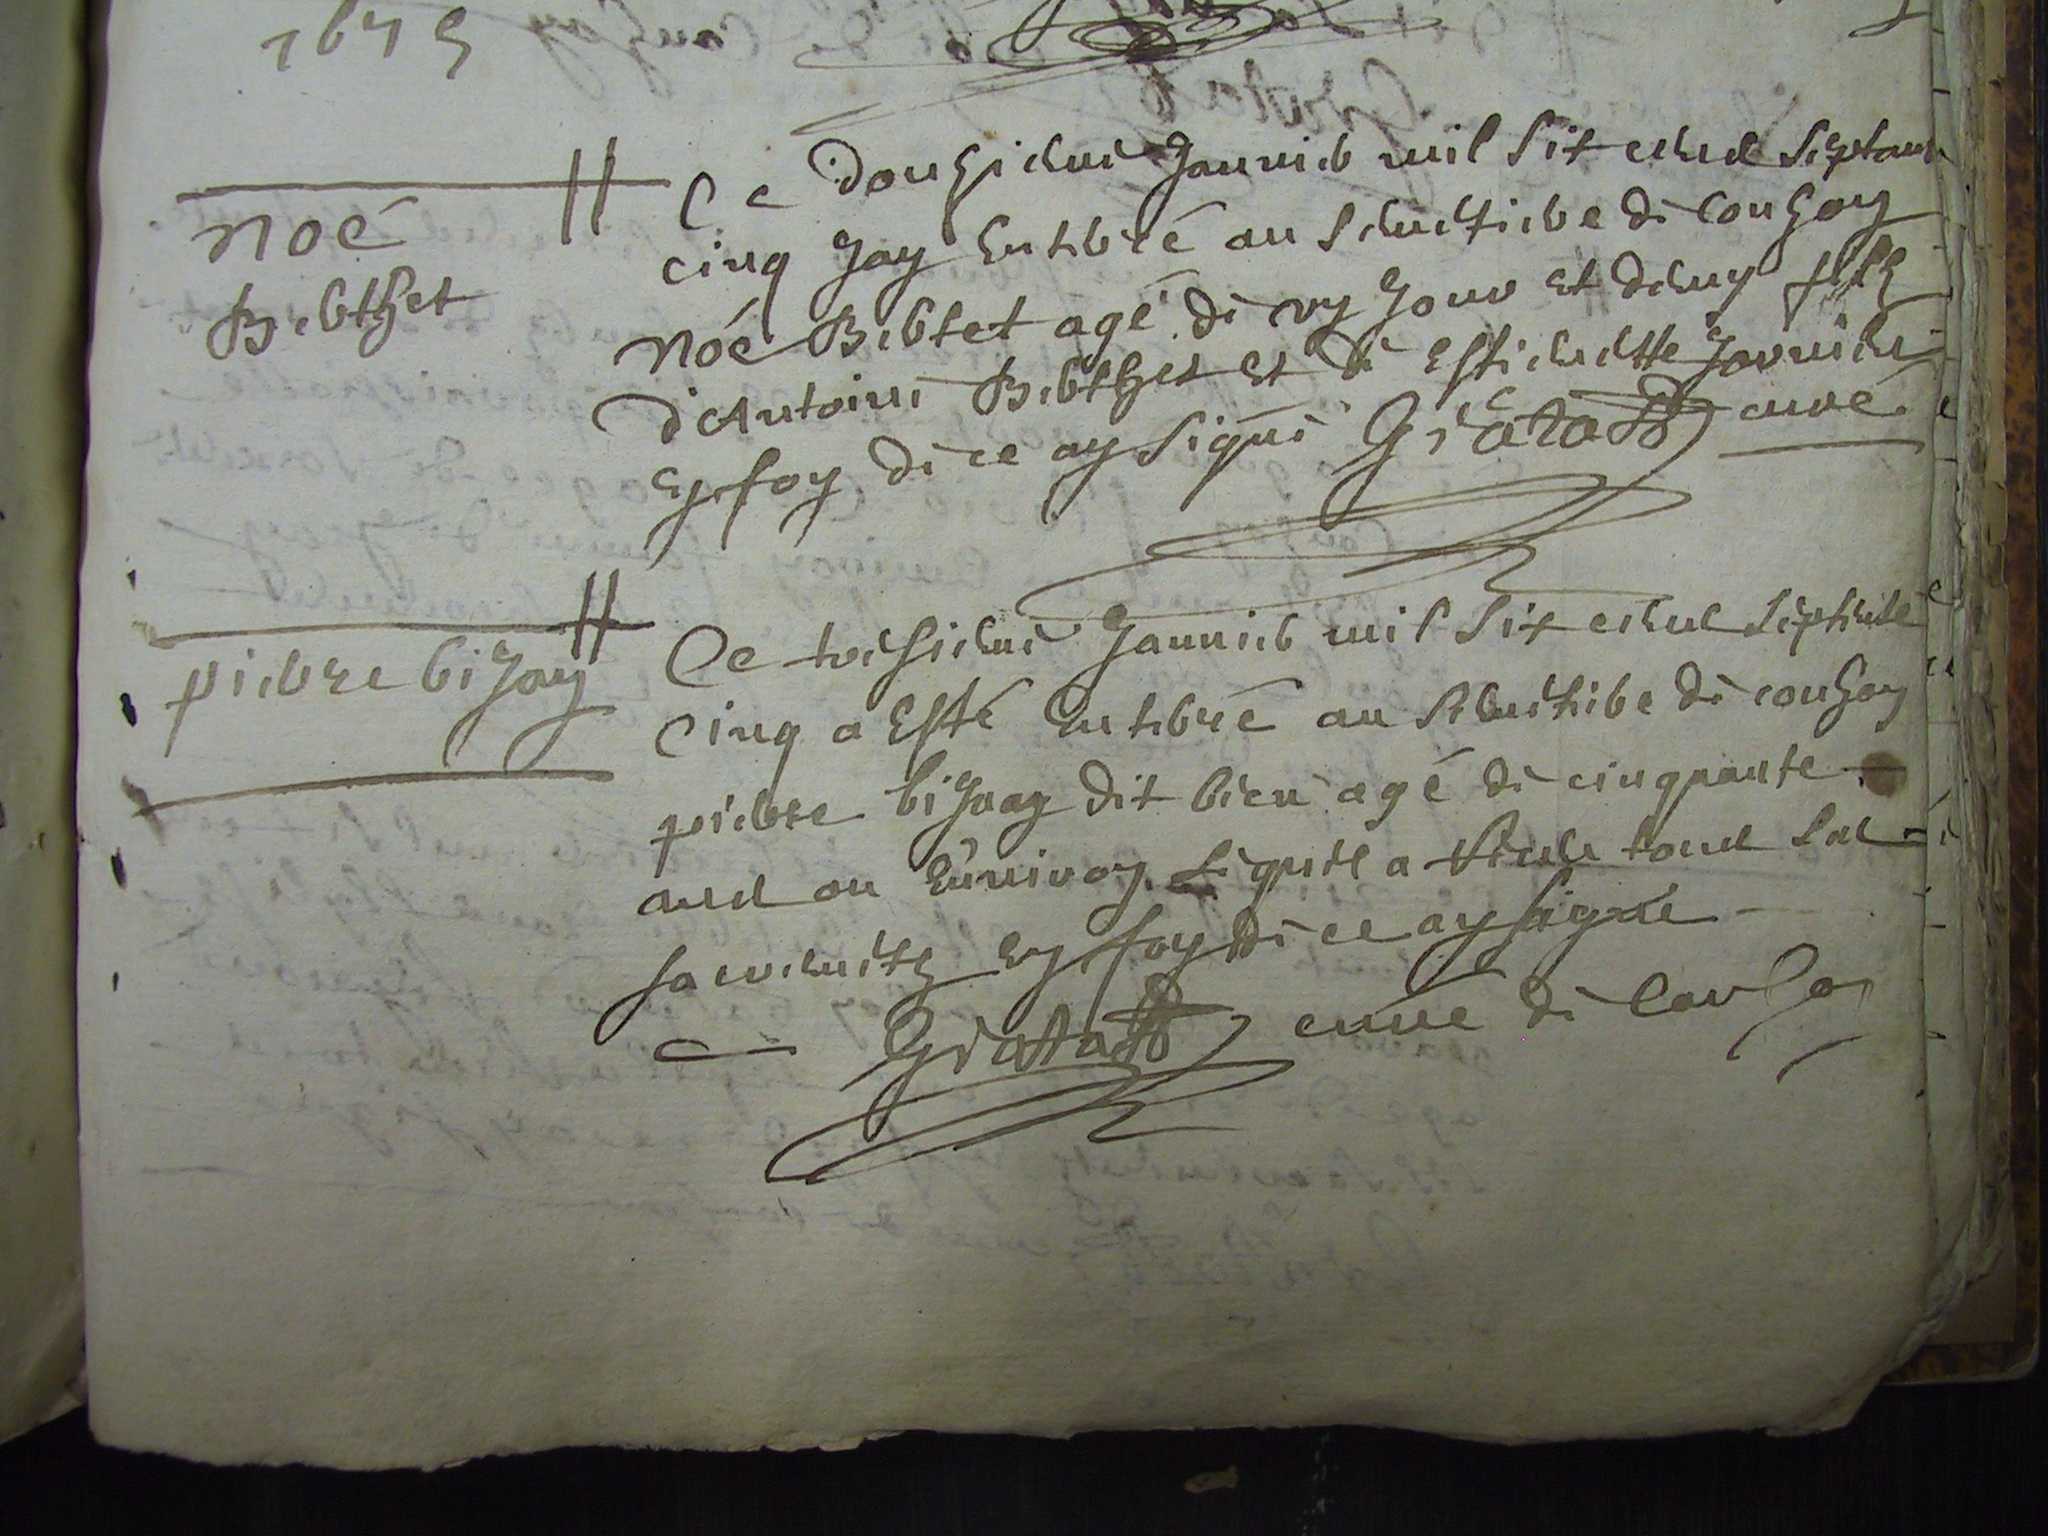 1675
noé
Berthet
Ce douzieme Januier mil six cens septante
cinq Jay enterré au Semetiere de Couzon
noé Bertet agé de un Jour et demy filz
d'Antoine Berthet et de Estiennette
en foy de ce ay signé curé
pierre bijon
Ce troisieme Januier mil six cens septente
cinq a esté enterré au Semetiere de couzon
pierre bijon dit bien agé de cinquante
ans ou enuiron lequel a receu tous les
sacremens en foy de ce ay signé
curé de Couzon